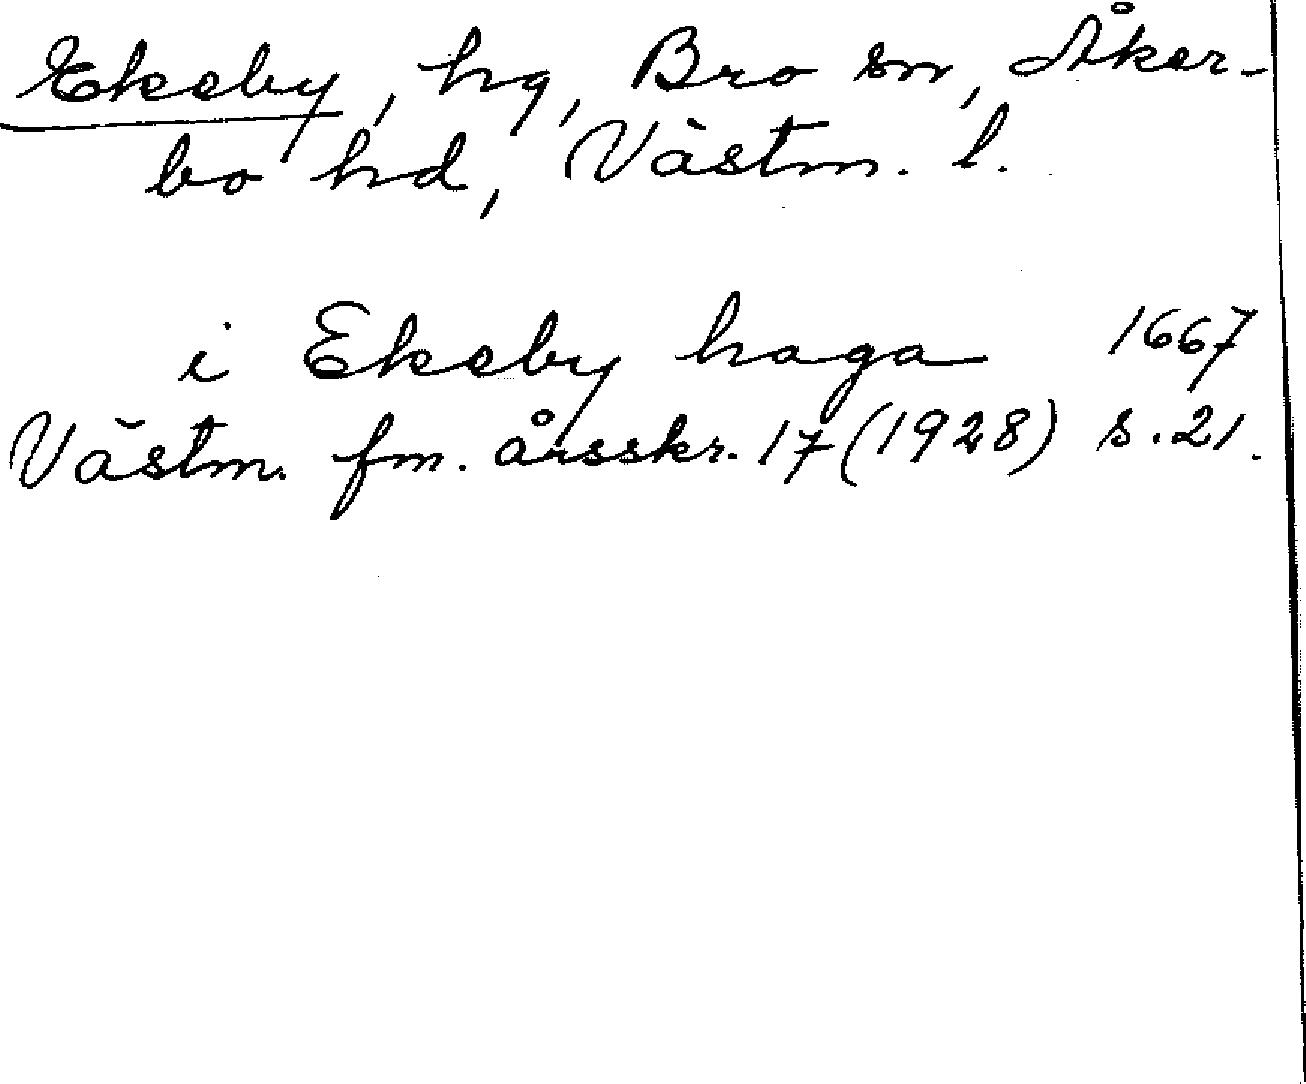 Ekeby, hg, Bro sn, Åker-
bo hd, Västm. l.
i Ekeby haga 1667
Västm. fm. årsskr. 17 (1928) s. 21.